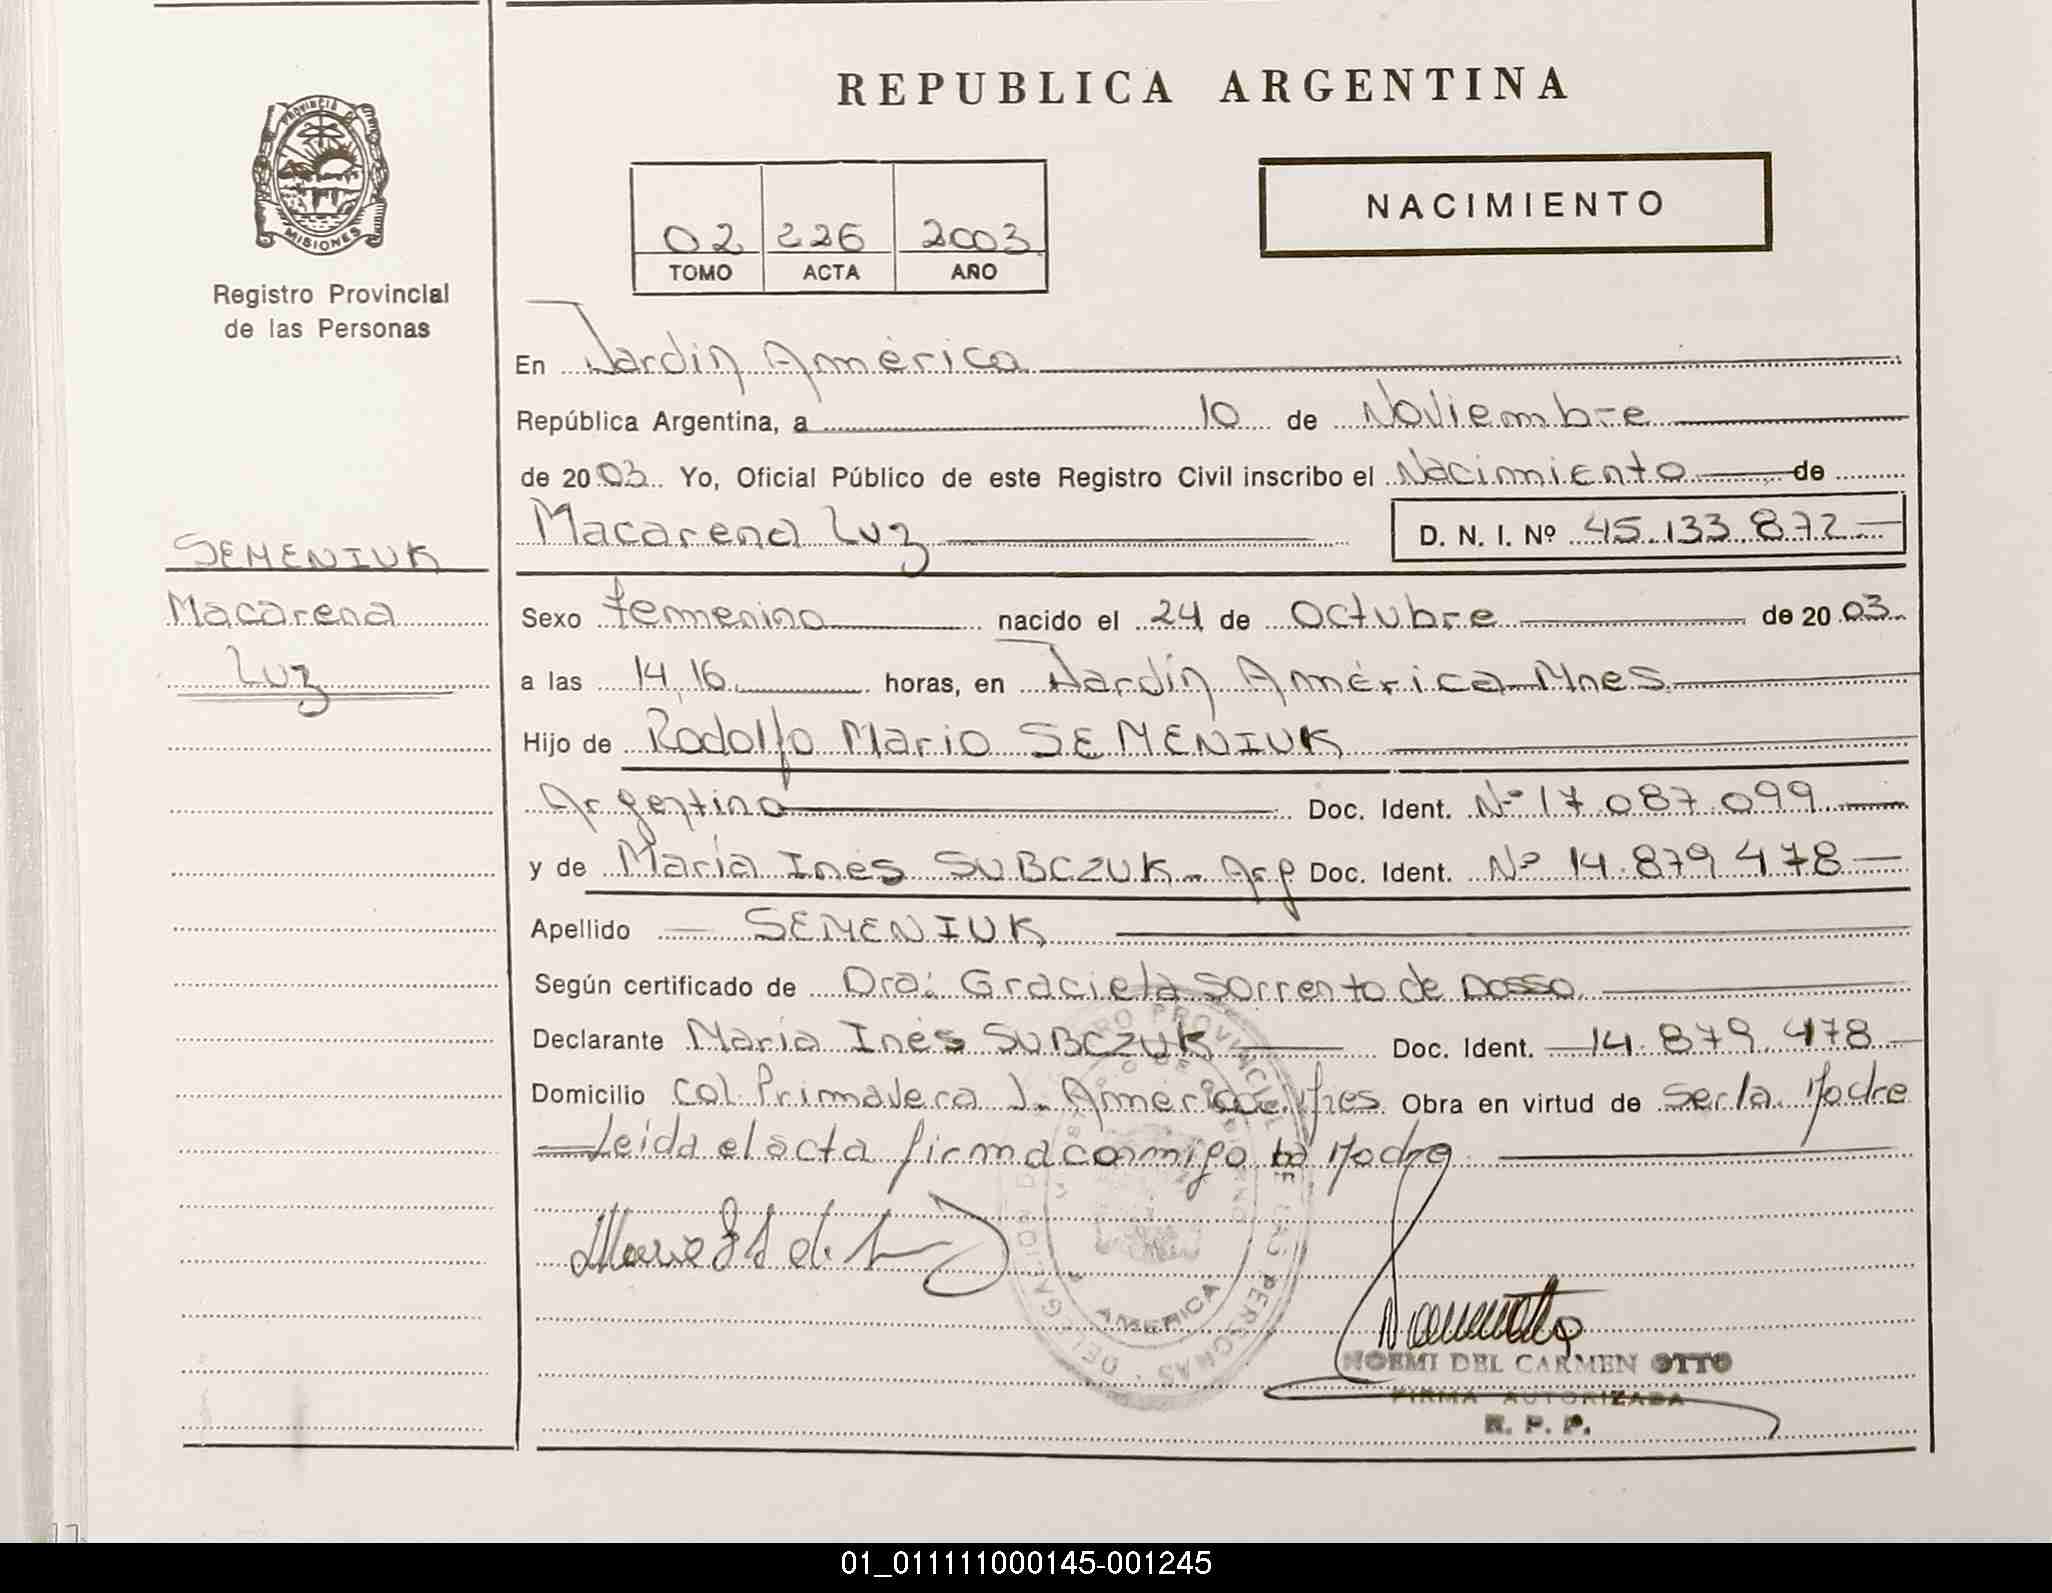 REPUBLICA ARGENTINA
PROVINCIA DE
MISIONES
Registro Provincial
de las Personas
NACIMIENTO
02 226 2003
TOMO ACTA AÑO
En Jardín América
República Argentina, a 10 de Noviembre
de 2003 Yo, Oficial Público de este Registro Civil inscribo el Nacimiento de
Macarena Luz D. N. I. Nº 45.133.872
SEMENIUK
Macarena
Luz
Sexo femenino nacido el 24 de Octubre de 2003
a las 14,16 horas, en Jardín América Mnes
Hijo de Rodolfo Mario SEMENIUK
Argentina Doc. Ident. Nº 17.087.099
y de María Inés SUBCZUK - Arg Doc. Ident. Nº 14.879.478
Apellido SEMENIUK
Según certificado de Dra: Graciela Sorrento de Dosso
Declarante María Inés SUBCZUK Doc. Ident. 14.879.478
Domicilio Col. Primavera J. América Mnes Obra en virtud de ser la Madre
Leída el acta firma conmigo la Madre
AMERICA
NOEMI DEL CARMEN OTTO
FIRMA AUTORIZADA
R. P. P.
01_011111000145-001245